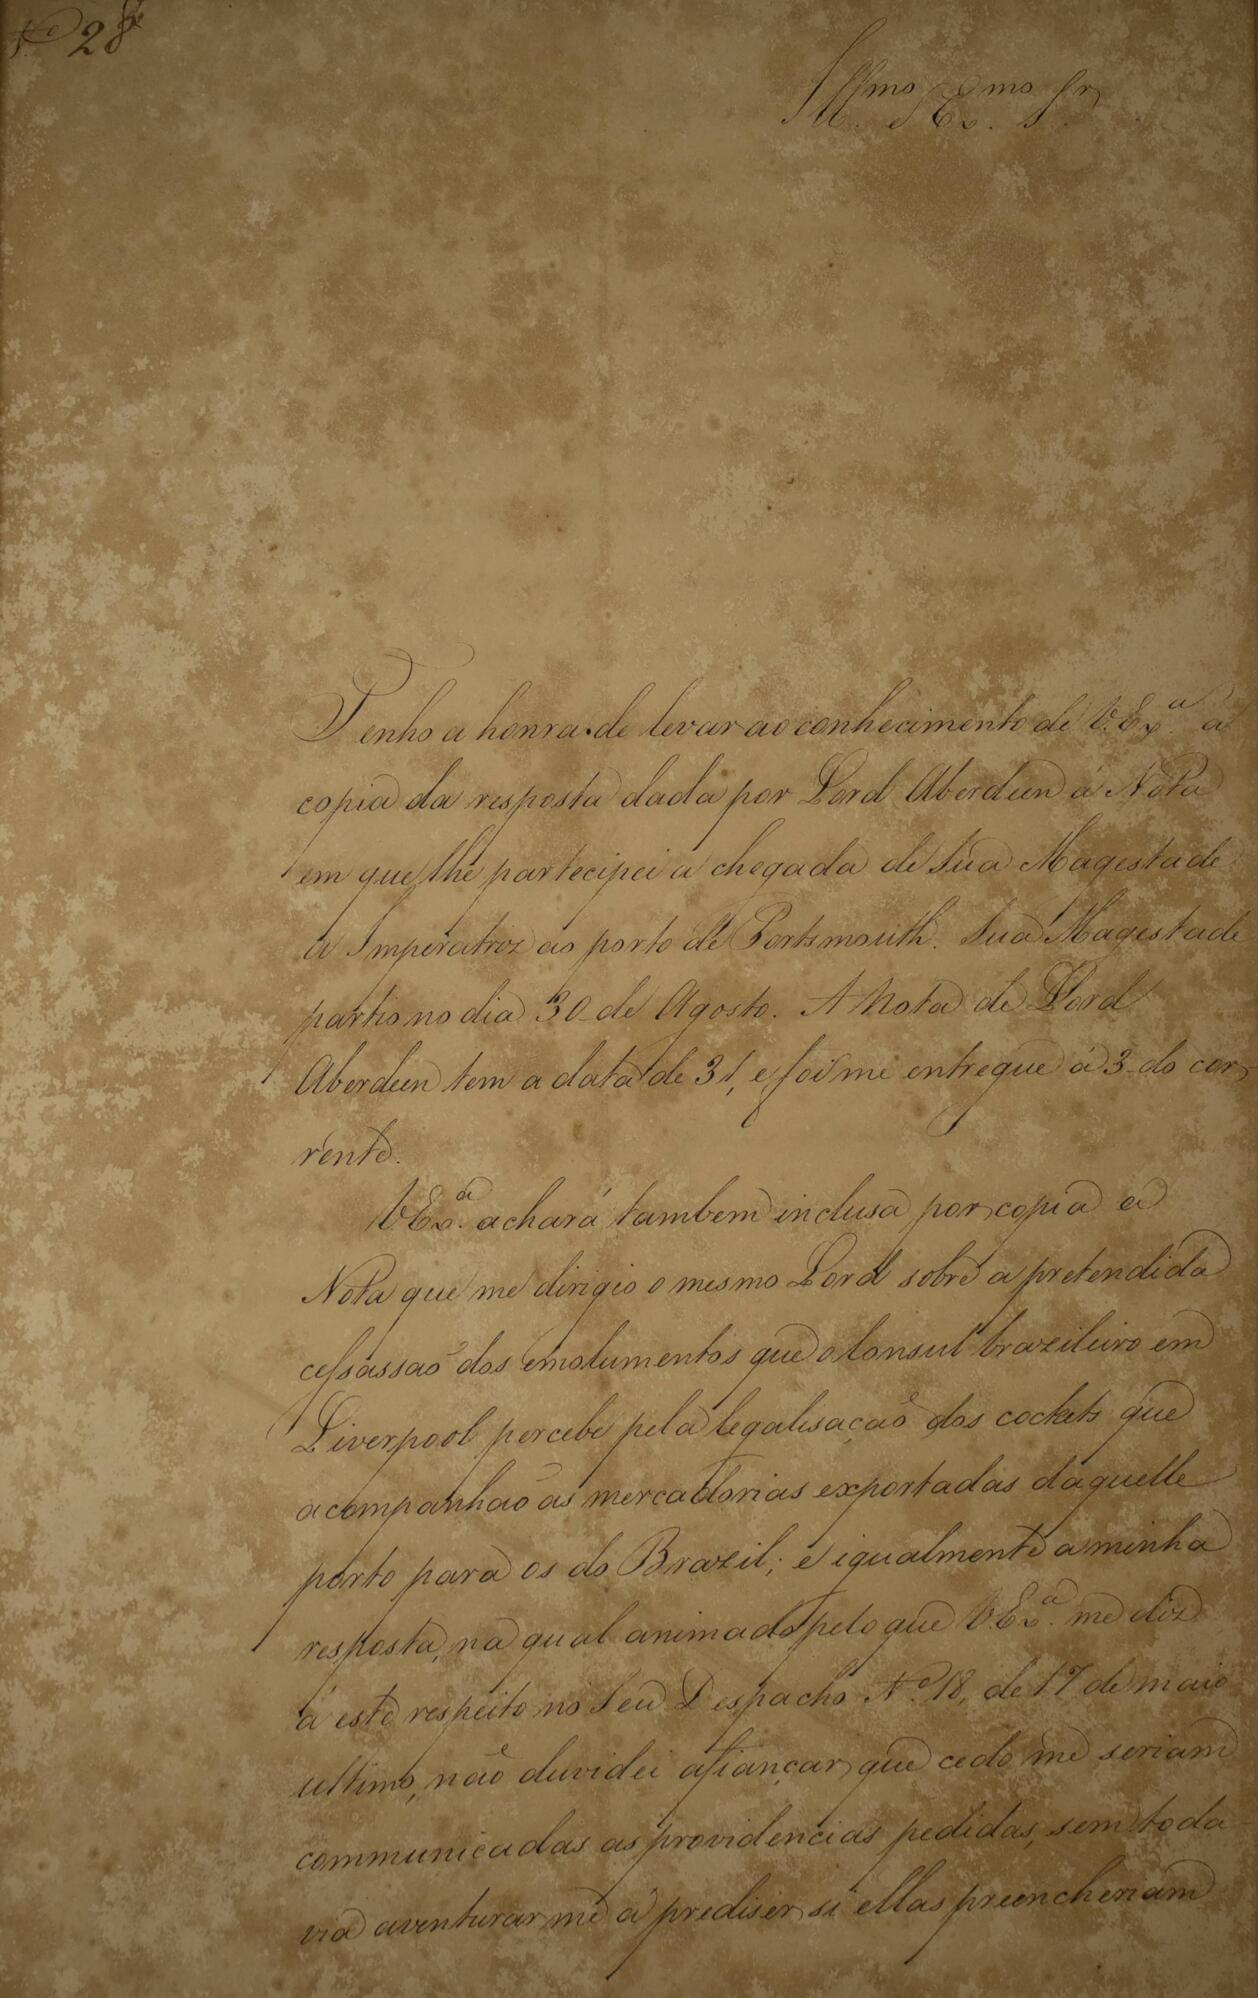 Nº 28
Illmo. Exmo. Sr.
Tenho a honra de levar ao conhecimento de V. Exa. a
copia da resposta dada por Lord Aberdeen á Nota
em que lhe partecipei a chegada de Sua Magestade
a Imperatriz ao porto de Portsmouth. Sua Magestade
partio no dia 30 de Agosto. A Nota de Lord
Aberdeen tem a data de 31, e foi me entregue á 3 do cor-
rente.
V Exa. achará tambem inclusa por copia a
Nota que me dirigio o mesmo Lord sobre a pretendida
cessassaõ dos emolumentos que o Consul brazileiro em
Liverpool percebe pela legalisaçaõ dos cockets que
acompanhaõ as mercadorias exportadas daquelle
porto para os do Brazil; e igualmente a minha
resposta, na qual animado pelo que V. Exa. me diz
á este respeito no Seu Despacho Nº 18, de 17 de maio
ultimo, naõ duvidei afiançar que cedo me seriam
communicadas as providencias pedidas, sem toda
via aventurar me á prediser si ellas preencheriam